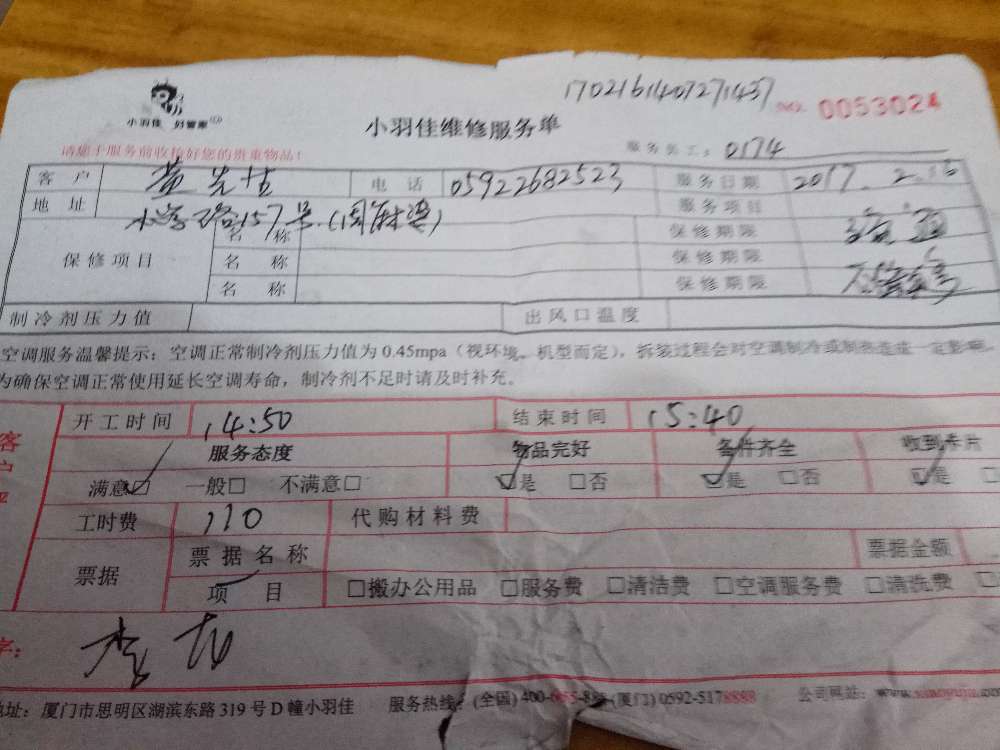 1702161407271437
小羽佳 好管家
小羽佳维修服务单
NO. 0053024
请您于服务前收捡好您的贵重物品！
服务员工：0174
客户 黄先生 电话 05922682523 服务日期 2017.2.16
地址 157号 服务项目
保修项目 名称 保修期限
名称 保修期限
名称 保修期限
制冷剂压力值 出风口温度
空调服务温馨提示：空调正常制冷剂压力值为0.45mpa（视环境、机型而定），拆装过程会对空调制冷或制热造成一定影响，
为确保空调正常使用延长空调寿命，制冷剂不足时请及时补充。
开工时间 14:50 结束时间 15:40
服务态度 物品完好 备件齐全 收到卡片
满意☑ 一般□ 不满意□ ☑是 □否 ☑是 □否 ☑是 □
工时费 110 代购材料费
票据 票据名称 票据金额
项目 □搬办公用品 □服务费 □清洁费 □空调服务费 □清洗费 □
字：
地址：厦门市思明区湖滨东路319号D幢小羽佳 服务热线：(全国) 400- (厦门) 0592-5178888 公司网站：www.